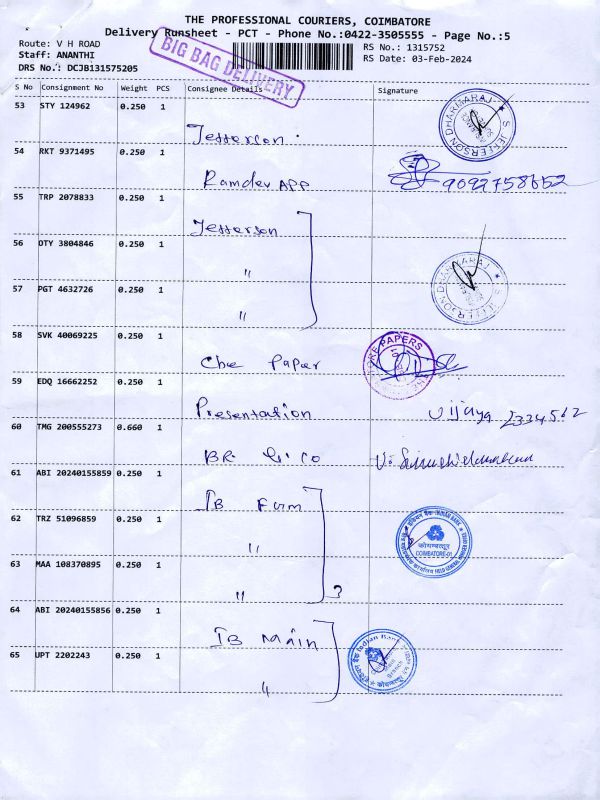 THE PROFESSIONAL COURIERS, COIMBATORE
Delivery Runsheet - PCT - Phone No.:0422-3505555 - Page No.:5
Route: V H ROAD
RS No.: 1315752
Staff: ANANTHI
RS Date: 03-Feb-2024
DRS No.: DCJB131575205
BIG BAG DELIVERY
S No Consignment No Weight PCS Consignee Details Signature
53 STY 124962 0.250 1
Jefferson.
S. JEFFERSON DHARMARAJ
54 RKT 9371495 0.250 1
Ramdev APP
55 TRP 2078833 0.250 1
Jefferson
56 OTY 3804846 0.250 1
"
57 PGT 4632726 0.250 1
"
S. JEFFERSON DHARMARAJ
58 SVK 40069225 0.250 1
Cbe Paper
PAPERS
59 EDQ 16662252 0.250 1
Presentation
Vijaya
60 TMG 200555273 0.660 1
BR & CO
61 ABI 20240155859 0.250 1
IB
62 TRZ 51096859 0.250 1
"
इंडियन बैंक INDIAN BANK
कोयम्बत्तूर
COIMBATORE-01
63 MAA 108370895 0.250 1
"
64 ABI 20240155856 0.250 1
IB Main
Indian Bank
Main
Branch
65 UPT 2202243 0.250 1
"